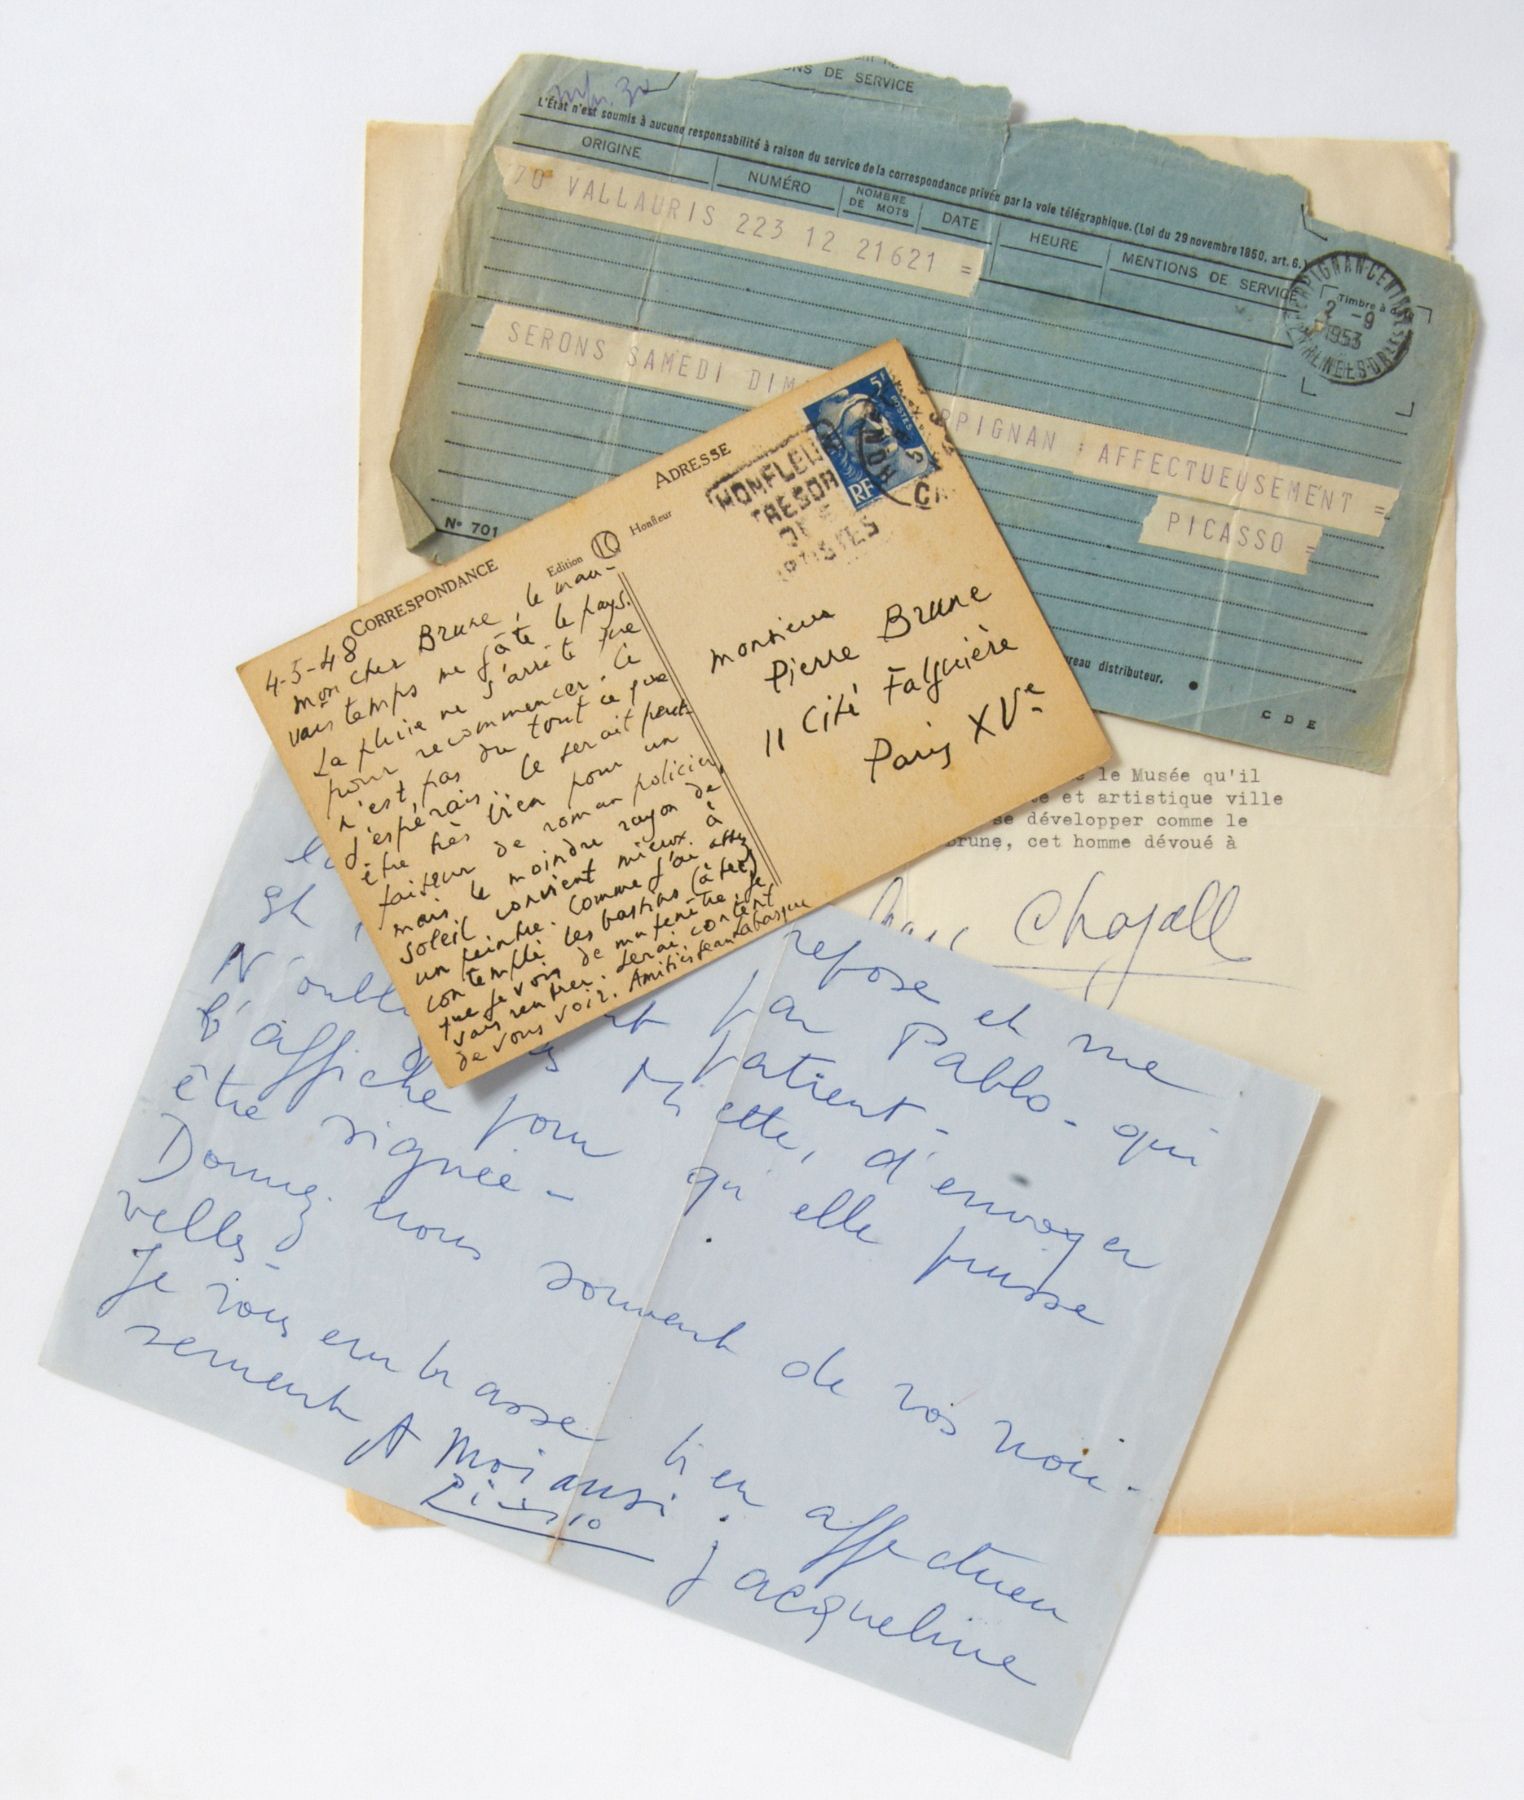 NS DE SERVICE
L'État n'est soumis à aucune responsabilité à raison du service de la correspondance privée par la voie télégraphique. (Loi du 29 novembre 1850, art. 6.)
ORIGINE NUMÉRO NOMBRE DE MOTS DATE HEURE MENTIONS DE SERVICE
70 VALLAURIS 223 12 21621 =
Timbre à
PIGNAN-CENT
2 -9
1953
SERONS SAMEDI DIM
RPIGNAN : AFFECTUEUSEMENT =
PICASSO =
N° 701
reau distributeur.
C D E
CORRESPONDANCE
Edition Honfleur
ADRESSE
5
POSTES
RF
HONFLEUR
TRESOR
DES
ARTISTES
4-5-48
mon cher Brune, le mau-
vais temps me gâte le pays.
La pluie ne s'arrête que
pour recommencer. Ce
n'est pas du tout ce que
j'espérais.. Ce serait peut-
être très bien pour un
faiseur de roman policier,
mais le moindre rayon de
soleil convient mieux à
un peintre. Comme j'ai assez
contemplé les bassins (à sec)
que je vois de ma fenêtre, je
vais rentrer. Serai content
de vous voir. Amitiés Jean Labasque
Monsieur
Pierre Brune
11 Cité Falguière
Paris XVe
e le Musée qu'il
te et artistique ville
se développer comme le
Brune, cet homme dévoué à
Chagall
repose et me
par Pablo - qui
st patient -
N'oubl Miette, d'envoyer
l'affiche pour qu'elle puisse
être signée -
Donnez nous souvent de vos nou-
velles -
Je vous embrasse bien affectueu
sement
Jacqueline
Moi aussi
Picasso